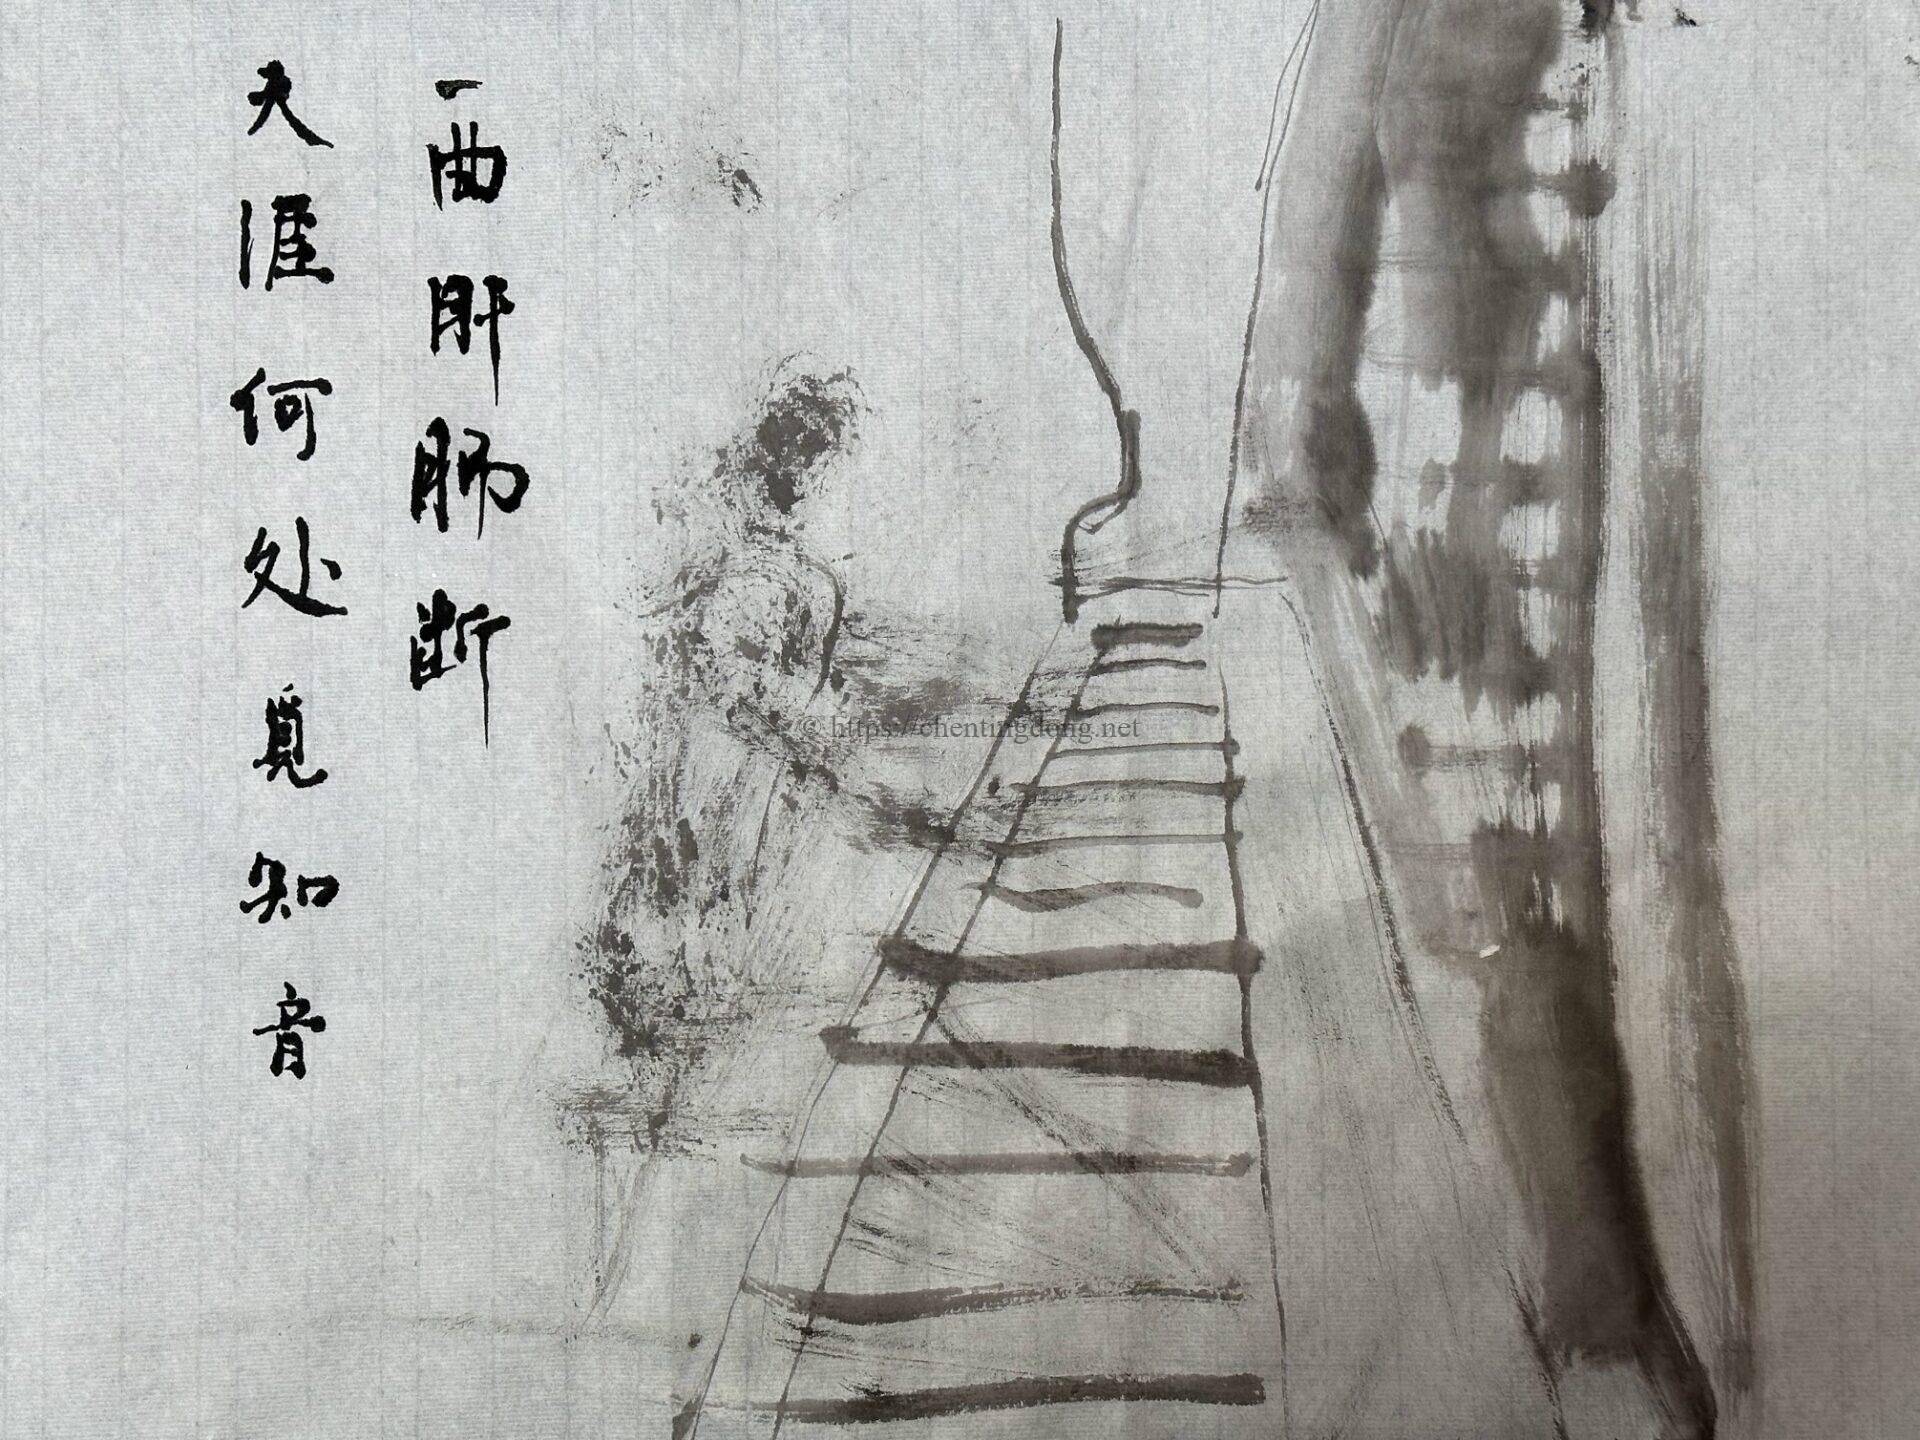 一曲肝肠断
天涯何处觅知音
© https://chentingdong.net